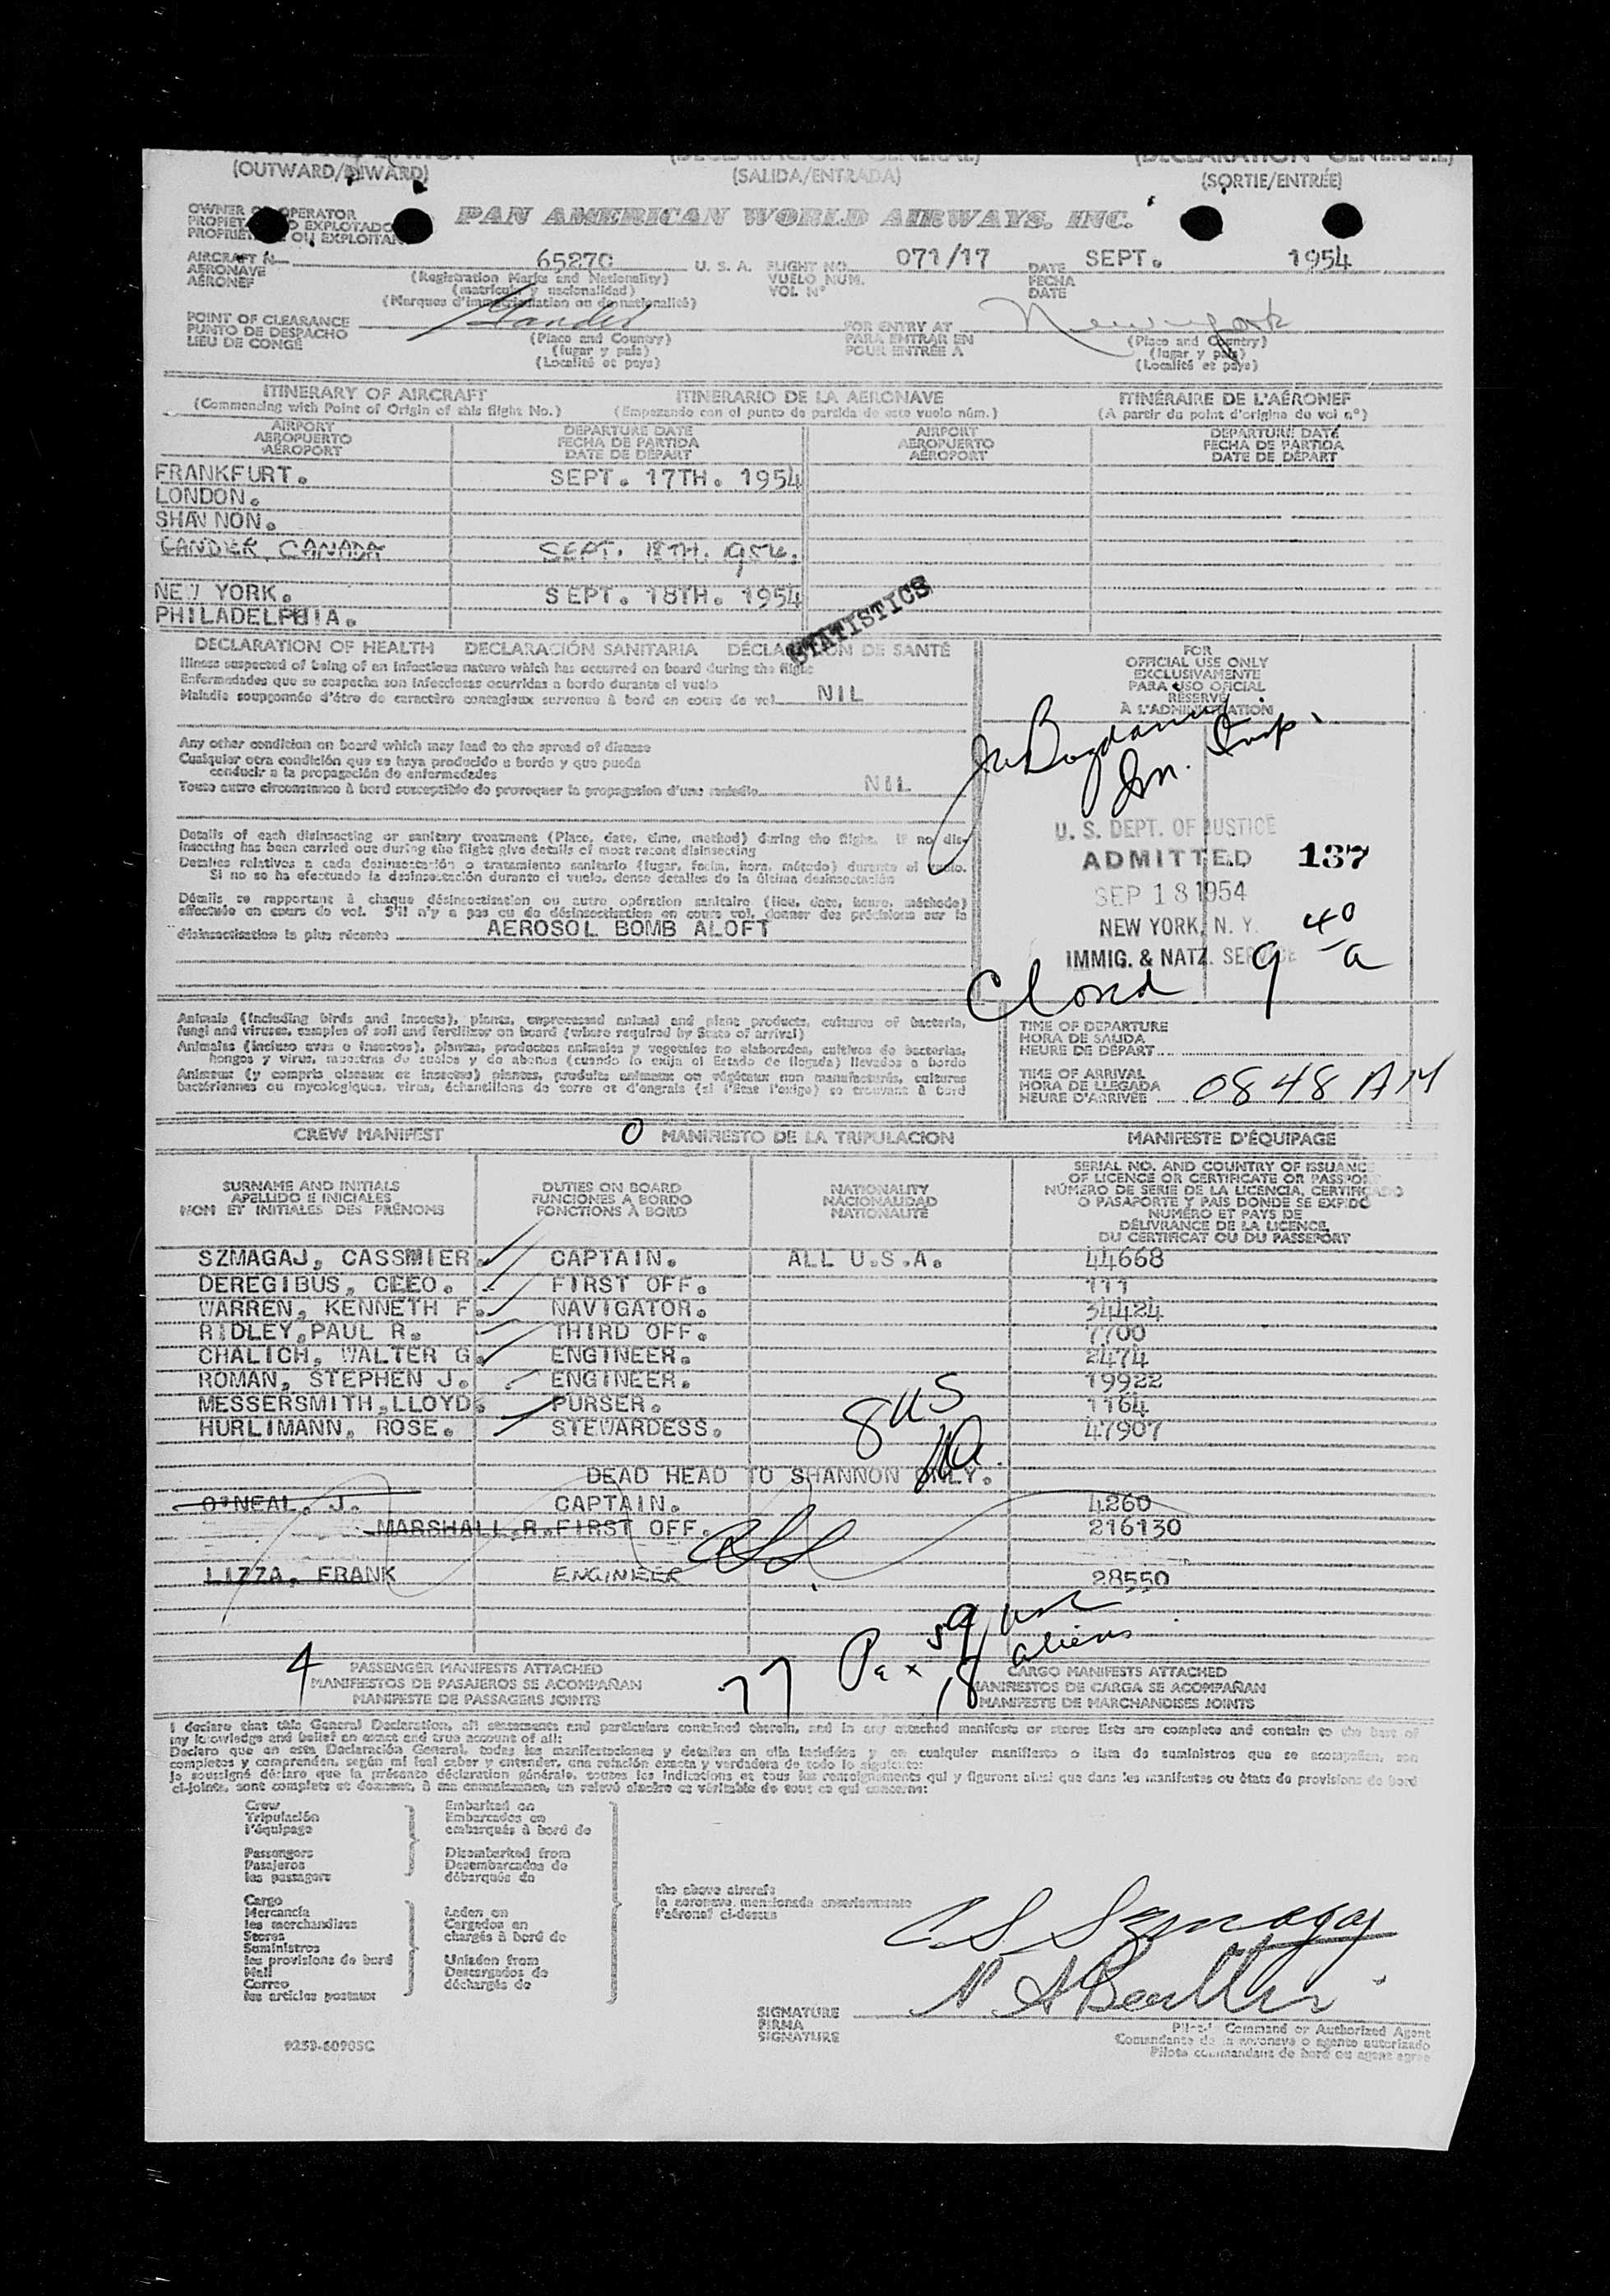 (OUTWARD/INWARD) (SALIDA/ENTRADA) (SORTIE/ENTRÉE)
OWNER OR OPERATOR
PROPIETARIO O EXPLOTADOR
PROPRIÉTAIRE OU EXPLOITANT
PAN AMERICAN WORLD AIRWAYS, INC.
AIRCRAFT N 65270 U. S. A. FLIGHT NO. 071/17 DATE SEPT. 1954
AERONAVE (Registration Marks and Nationality) VUELO NUM. FECHA
AÉRONEF (matrícula y nacionalidad) VOL N° DATE
(Marques d'immatriculation ou de nationalité)
POINT OF CLEARANCE Gander FOR ENTRY AT New York
PUNTO DE DESPACHO (Place and Country) PARA ENTRAR EN (Place and Country)
LIEU DE CONGÉ (lugar y país) POUR ENTRÉE A (lugar y país)
(Localité et pays) (Localité et pays)
ITINERARY OF AIRCRAFT ITINERARIO DE LA AERONAVE ITINÉRAIRE DE L'AÉRONEF
(Commencing with Point of Origin of this flight No.) (Empezando con el punto de partida de este vuelo núm.) (A partir du point d'origine du vol n°)
AIRPORT DEPARTURE DATE AIRPORT DEPARTURE DATE
AEROPUERTO FECHA DE PARTIDA AEROPUERTO FECHA DE PARTIDA
AÉROPORT DATE DE DÉPART AÉROPORT DATE DE DÉPART
FRANKFURT. SEPT. 17TH. 1954
LONDON.
SHANNON.
GANDER CANADA SEPT. 18TH. 1954.
NEW YORK. SEPT. 18TH. 1954
PHILADELPHIA.
STATISTICS
DECLARATION OF HEALTH DECLARACIÓN SANITARIA DÉCLARATION DE SANTÉ
Illness suspected of being of an infectious nature which has occurred on board during the flight
Enfermedades que se sospecha son infecciosas ocurridas a bordo durante el vuelo
Maladie soupçonnée d'être de caractère contagieux survenue à bord en cours de vol NIL
Any other condition on board which may lead to the spread of disease
Cualquier otra condición que se haya producido a bordo y que pueda
conducir a la propagación de enfermedades
Toute autre circonstance à bord susceptible de provoquer la propagation d'une maladie NIL
Details of each disinsecting or sanitary treatment (Place, date, time, method) during the flight. If no dis-
insecting has been carried out during the flight give details of most recent disinsecting
Detalles relativos a cada desinsectación o tratamiento sanitario (lugar, fecha, hora, método) durante el vuelo.
Si no se ha efectuado la desinsectación durante el vuelo, dense detalles de la última desinsectación
Détails se rapportant à chaque désinsectisation ou autre opération sanitaire (lieu, date, heure, méthode)
effectuée en cours de vol. S'il n'y a pas eu de désinsectisation en cours vol, donner des précisions sur la
désinsectisation la plus récente AEROSOL BOMB ALOFT
FOR
OFFICIAL USE ONLY
EXCLUSIVAMENTE
PARA USO OFICIAL
RÉSERVÉ
À L'ADMINISTRATION
Im. Insp.
U. S. DEPT. OF JUSTICE
ADMITTED 137
SEP 18 1954
NEW YORK, N. Y.
IMMIG. & NATZ. SERVICE
Closed 9 40 a
Animals (including birds and insects), plants, unprocessed animal and plant products, cultures of bacteria,
fungi and viruses, samples of soil and fertilizer on board (where required by State of arrival)
Animales (incluso aves e insectos), plantas, productos animales y vegetales no elaborados, cultivos de bacterias,
hongos y virus, muestras de suelos y de abonos (cuando lo exija el Estado de llegada) llevados a bordo
Animaux (y compris oiseaux et insectes) plantes, produits animaux ou végétaux non manufacturés, cultures
bactériennes ou mycologiques, virus, échantillons de terre et d'engrais (si l'État l'exige) se trouvant à bord
O
TIME OF DEPARTURE
HORA DE SALIDA
HEURE DE DÉPART
TIME OF ARRIVAL
HORA DE LLEGADA
HEURE D'ARRIVÉE 0848 AM
CREW MANIFEST MANIFIESTO DE LA TRIPULACION MANIFESTE D'ÉQUIPAGE
SURNAME AND INITIALS
APELLIDO E INICIALES
NOM ET INITIALES DES PRÉNOMS
DUTIES ON BOARD
FUNCIONES A BORDO
FONCTIONS À BORD
NATIONALITY
NACIONALIDAD
NATIONALITÉ
SERIAL NO. AND COUNTRY OF ISSUANCE
OF LICENCE OR CERTIFICATE OR PASSPORT
NÚMERO DE SERIE DE LA LICENCIA, CERTIFICADO
O PASAPORTE Y PAIS DONDE SE EXPIDO
NUMÉRO ET PAYS DE
DÉLIVRANCE DE LA LICENCE,
DU CERTIFICAT OU DU PASSEPORT
SZMAGAJ, CASSMIER. CAPTAIN. ALL U.S.A. 44668
DEREGIBUS, CLEO. FIRST OFF. 111
WARREN, KENNETH F. NAVIGATOR. 34424
RIDLEY,PAUL R. THIRD OFF. 7700
CHALICH, WALTER G. ENGINEER. 2474
ROMAN, STEPHEN J. ENGINEER. 19922
MESSERSMITH,LLOYD. PURSER. 1164
HURLIMANN, ROSE. STEWARDESS. 47907
8 US
DEAD HEAD TO SHANNON ONLY.
O'NEAL, J. CAPTAIN. 4260
MARSHALL.R.FIRST OFF. 216130
LIZZA, FRANK ENGINEER 28550
77 Pax 59 usc
18 aliens
4 PASSENGER MANIFESTS ATTACHED
MANIFIESTOS DE PASAJEROS SE ACOMPAÑAN
MANIFESTE DE PASSAGERS JOINTS
CARGO MANIFESTS ATTACHED
MANIFIESTOS DE CARGA SE ACOMPAÑAN
MANIFESTE DE MARCHANDISES JOINTS
I declare that this General Declaration, all statements and particulars contained therein, and in any attached manifests or stores lists are complete and contain to the best of
my knowledge and belief an exact and true account of all:
Declaro que en esta Declaración General, todas las manifestaciones y detalles en ella incluídos y en cualquier manifiesto o lista de suministros que se acompañen, son
completos y comprenden, según mi leal saber y entender, una relación exacta y verdadera de todo lo siguiente:
Je soussigné déclare que la présente déclaration générale, toutes les indications et tous les renseignements qui y figurent ainsi que dans les manifestes ou états de provisions de bord
ci-joints, sont complets et donnent, à ma connaissance, un relevé sincère et véritable de tout ce qui concerne:
Crew
Tripulación
l'équipage
Passengers
Pasajeros
les passagers
Cargo
Mercancía
les marchandises
Stores
Suministros
les provisions de bord
Mail
Correo
les articles postaux
Embarked on
Embarcados en
embarqués à bord de
Disembarked from
Desembarcados de
débarqués de
Laden on
Cargados en
chargés à bord de
Unladen from
Descargados de
déchargés de
the above aircraft
la aeronave mencionada anteriormente
l'aéronef ci-dessus
C S Szmagaj
SIGNATURE
FIRMA
SIGNATURE
Pilot Command or Authorized Agent
Comandante de la aeronave o agente autorizado
Pilote commandant de bord ou agent agréé
9253-60905C